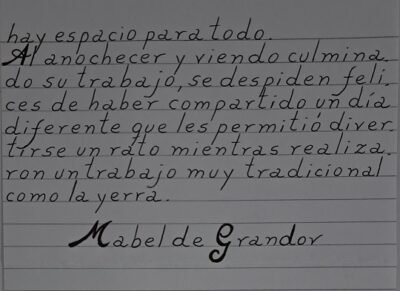 hay espacio para todo.
Al anochecer y viendo culmina.
do su trabajo, se despiden feli.
ces de haber compartido un día
diferente que les permitió diver.
tirse un rato mientras realiza.
ron un trabajo muy tradicional
como la yerra.
Mabel de Grandov